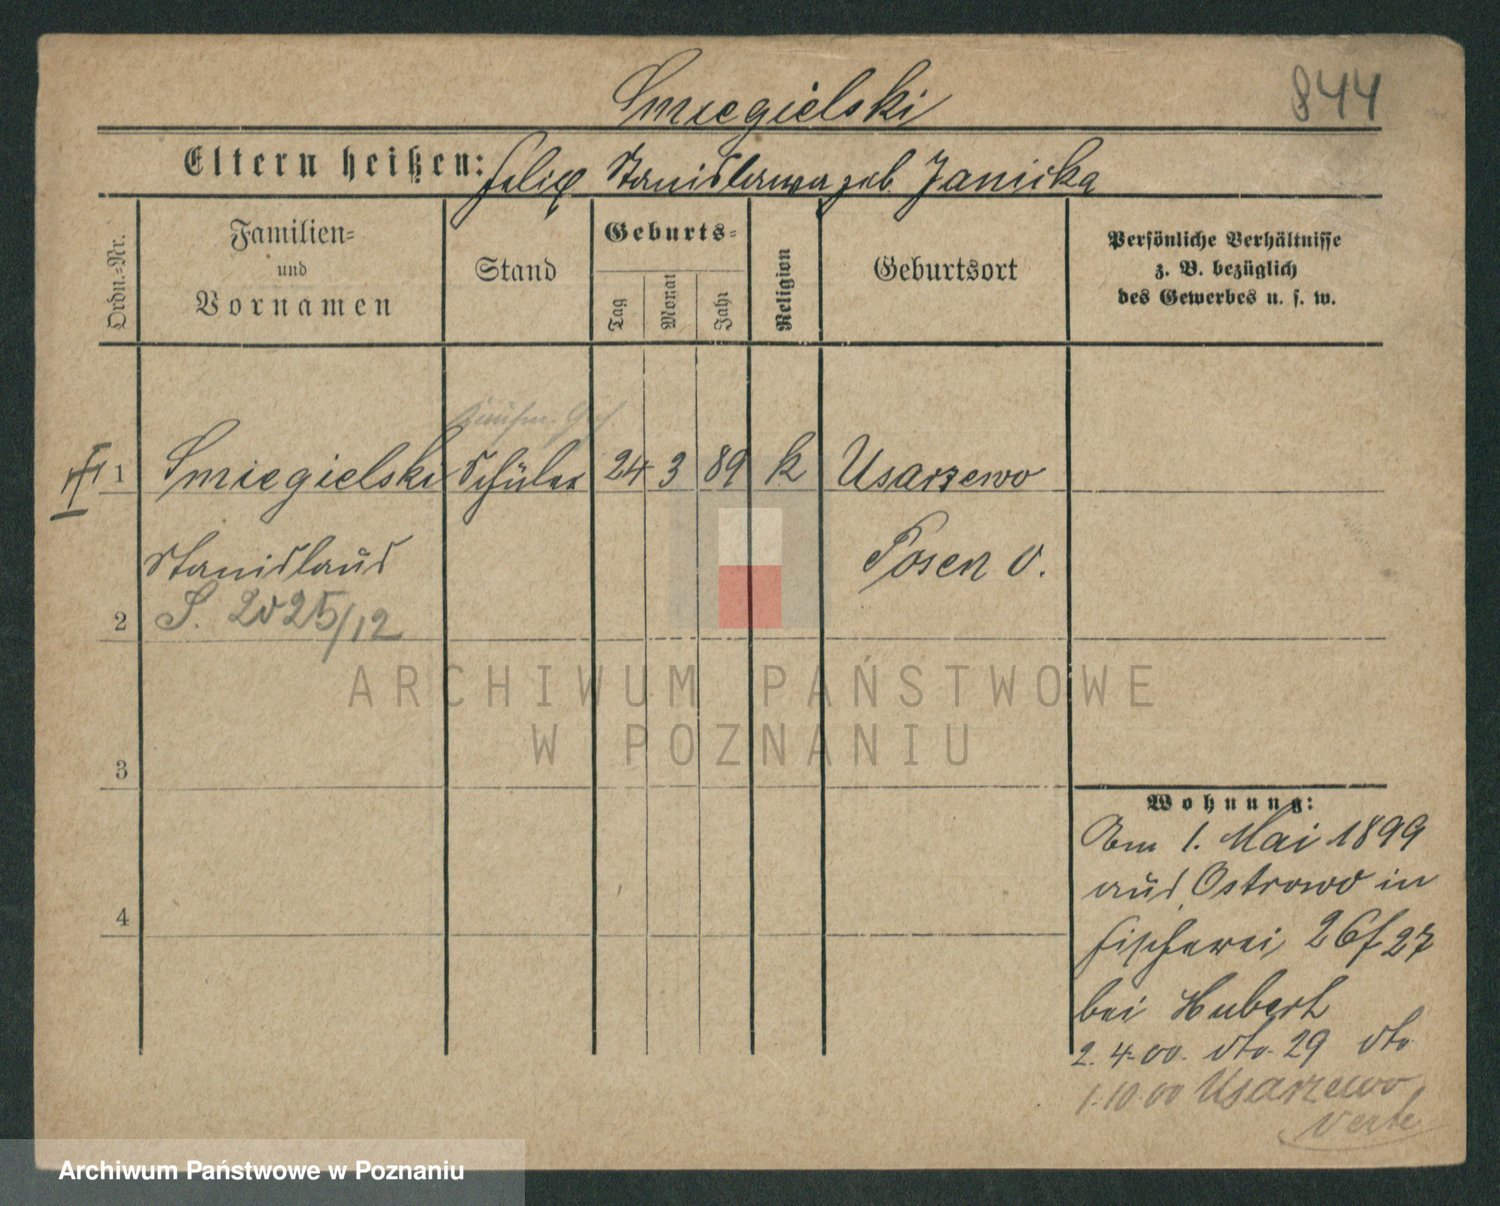 Smiegielski
844
Eltern heißen: Felix Stanislawa geb. Janicka
Ordn.-Nr.
Familien-
und
Vornamen
Stand
Geburts-
Tag
Monat
Jahr
Religion
Geburtsort
Persönliche Verhältnisse
z. B. bezüglich
des Gewerbes u. s. w.
1 Smiegielski Schüler 24 3 89 k Usarzewo
Stanislaus Posen O.
2 S. 2025/12
ARCHIWUM PAŃSTWOWE
W POZNANIU
3
Wohnung:
Am 1. Mai 1899
aus Ostrowo in
4
Fischerei 26/27
bei Hubert
2. 4. 00. dto 29 dto
1.10.00 Usarzewo
verte
Archiwum Państwowe w Poznaniu